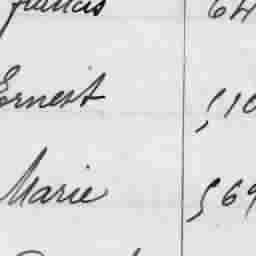 Francis 64
Ernest 510
Marie 569